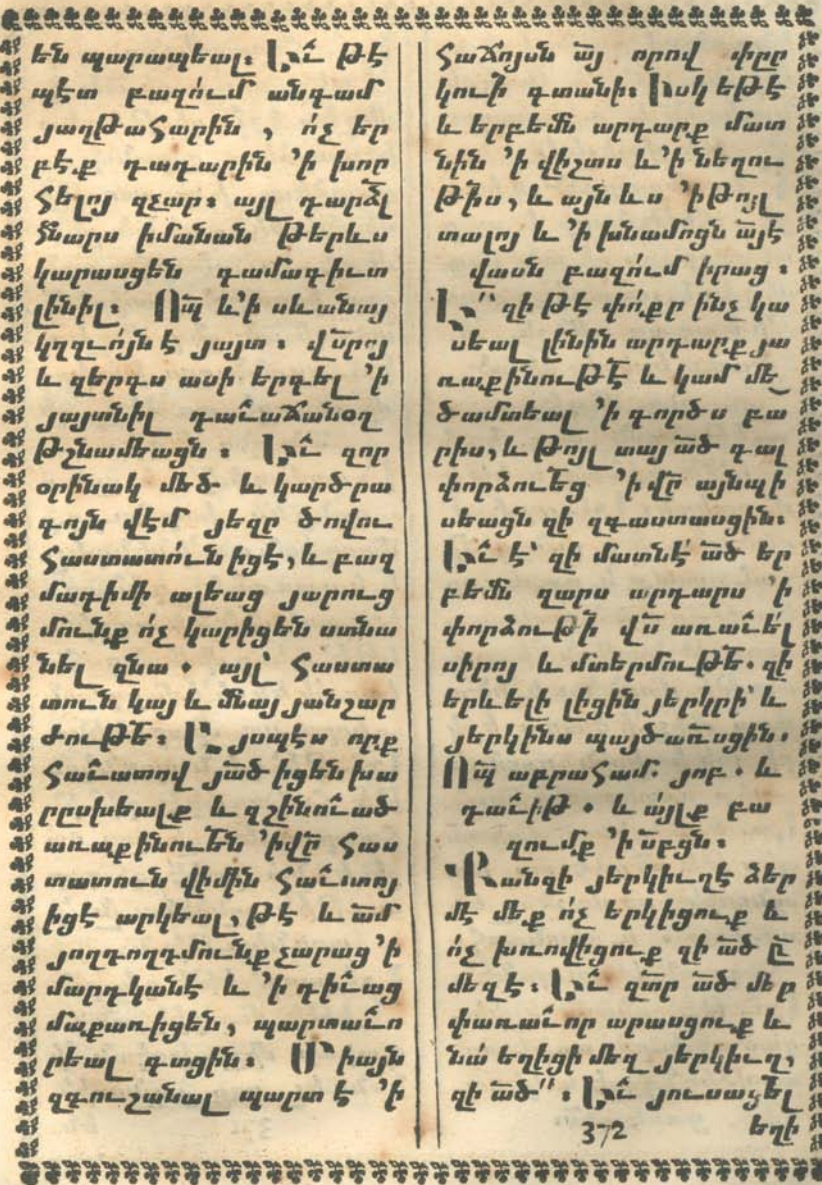 են պարապեալ։ Եւ՟ թէ
պէտ բազում անգամ
յաղթահարին, ոչ եր
բէք դադարին 'ի խոր
հելոյ զչար։ այլ դարձլ
հնարս իմանան թերևս
կարասցեն գամագիւտ
լինիլ։ Ո՟պ և 'ի սևանայ
կղզւոյն է յայտ։ վ՟սրոյ
և զերգս ասի երգել 'ի
յայտնիլ դաւ՟աճանօղ
թշնամեացն։ Եւ՟ զոր
օրինակ մեծ և կարծրա
գոյն վէմ յեզր ծովու
հաստատուն իցէ, և բազ
մադիմի ալեաց յարուց
մունք ոչ կարիցեն սասա
նել զնա. այլ՝ հաստա
տուն կայ և մնայ յանշար
ժութե՟։ Եւ յսպէս որք
հաւ՟ատով յա՟ծ իցեն խա
րըսխեալք և զշինոււ՟ած
առաքինուե՟ն 'ի վր՟ հաս
տատուն վիմին հաւ՟տոյ
իցէ արկեալ, թէ և ա՟մ
յողդողդմունք չարաց 'ի
մարդկանէ և 'ի դիւ՟աց
մաքառիցեն, պարտաւ՟ո
րեալ գտցին։ Միայն
զգուշանալ պարտ է 'ի
հաճոյսն ա՟յ որով փըր
կուի՟ գտանի։ Իսկ եթէ
և երբեմն արդարք մատ
նին 'ի վիշտս և 'ի նեղու
թի՟ս, և այն ևս 'ի թոյլ
տալոյ և 'ի խնամոցն ա՟յէ
վասն բազում իրաց։
Եւ՟՟ զի թէ փոքր ինչ կա
սեալ լինին արդարք յա
ռաքինութէ՟ և կամ մե՟
ծամտեալ 'ի գործս բա
րիս, և թոյլ տայ ա՟ծ գալ
փորձուե՟ց 'ի վր՟ այնպի
սեացն զի զգաստասցին։
Եւ՟ է՝ զի մատնէ՛ ա՟ծ եր
բեմն զարս արդարս 'ի
փորձութի՟ վ՟ս առաւ՟ել
սիրոյ և մտերմութե՟. զի
երևելի լիցին յերկրի՝ և
յերկինս պայծառ՟սցին։
Ո՟պ աբրահամ. յոբ. և
դաւ՟իթ. և այլք բա
զումք 'ի ս՟րբցն։
Քանզի յերկիւղէ ձեր
մէ մեք ոչ երկիցուք և
ոչ խռովիցուք զի ա՟ծ ը՟
մեզ է։ Եւ՟ զտր՟ ա՟ծ մեր
փառաւ՟որ արասցուք և
նա՛ եղիցի մեզ յերկիւղ,
զի ա՟ծ՟՟։ Եւ՟ յուսացել
372
եղի